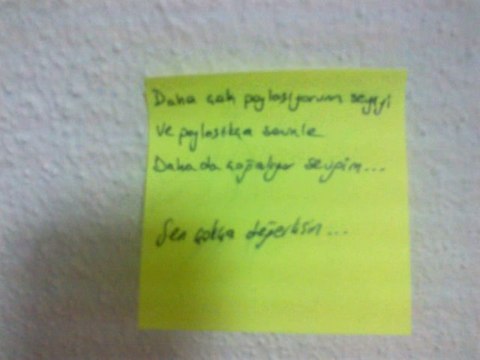 Daha çok paylaşıyorum sevgiyi
ve paylaştıkça seninle
Daha da çoğalıyor sevgim...
Sen çokça değerlisin...